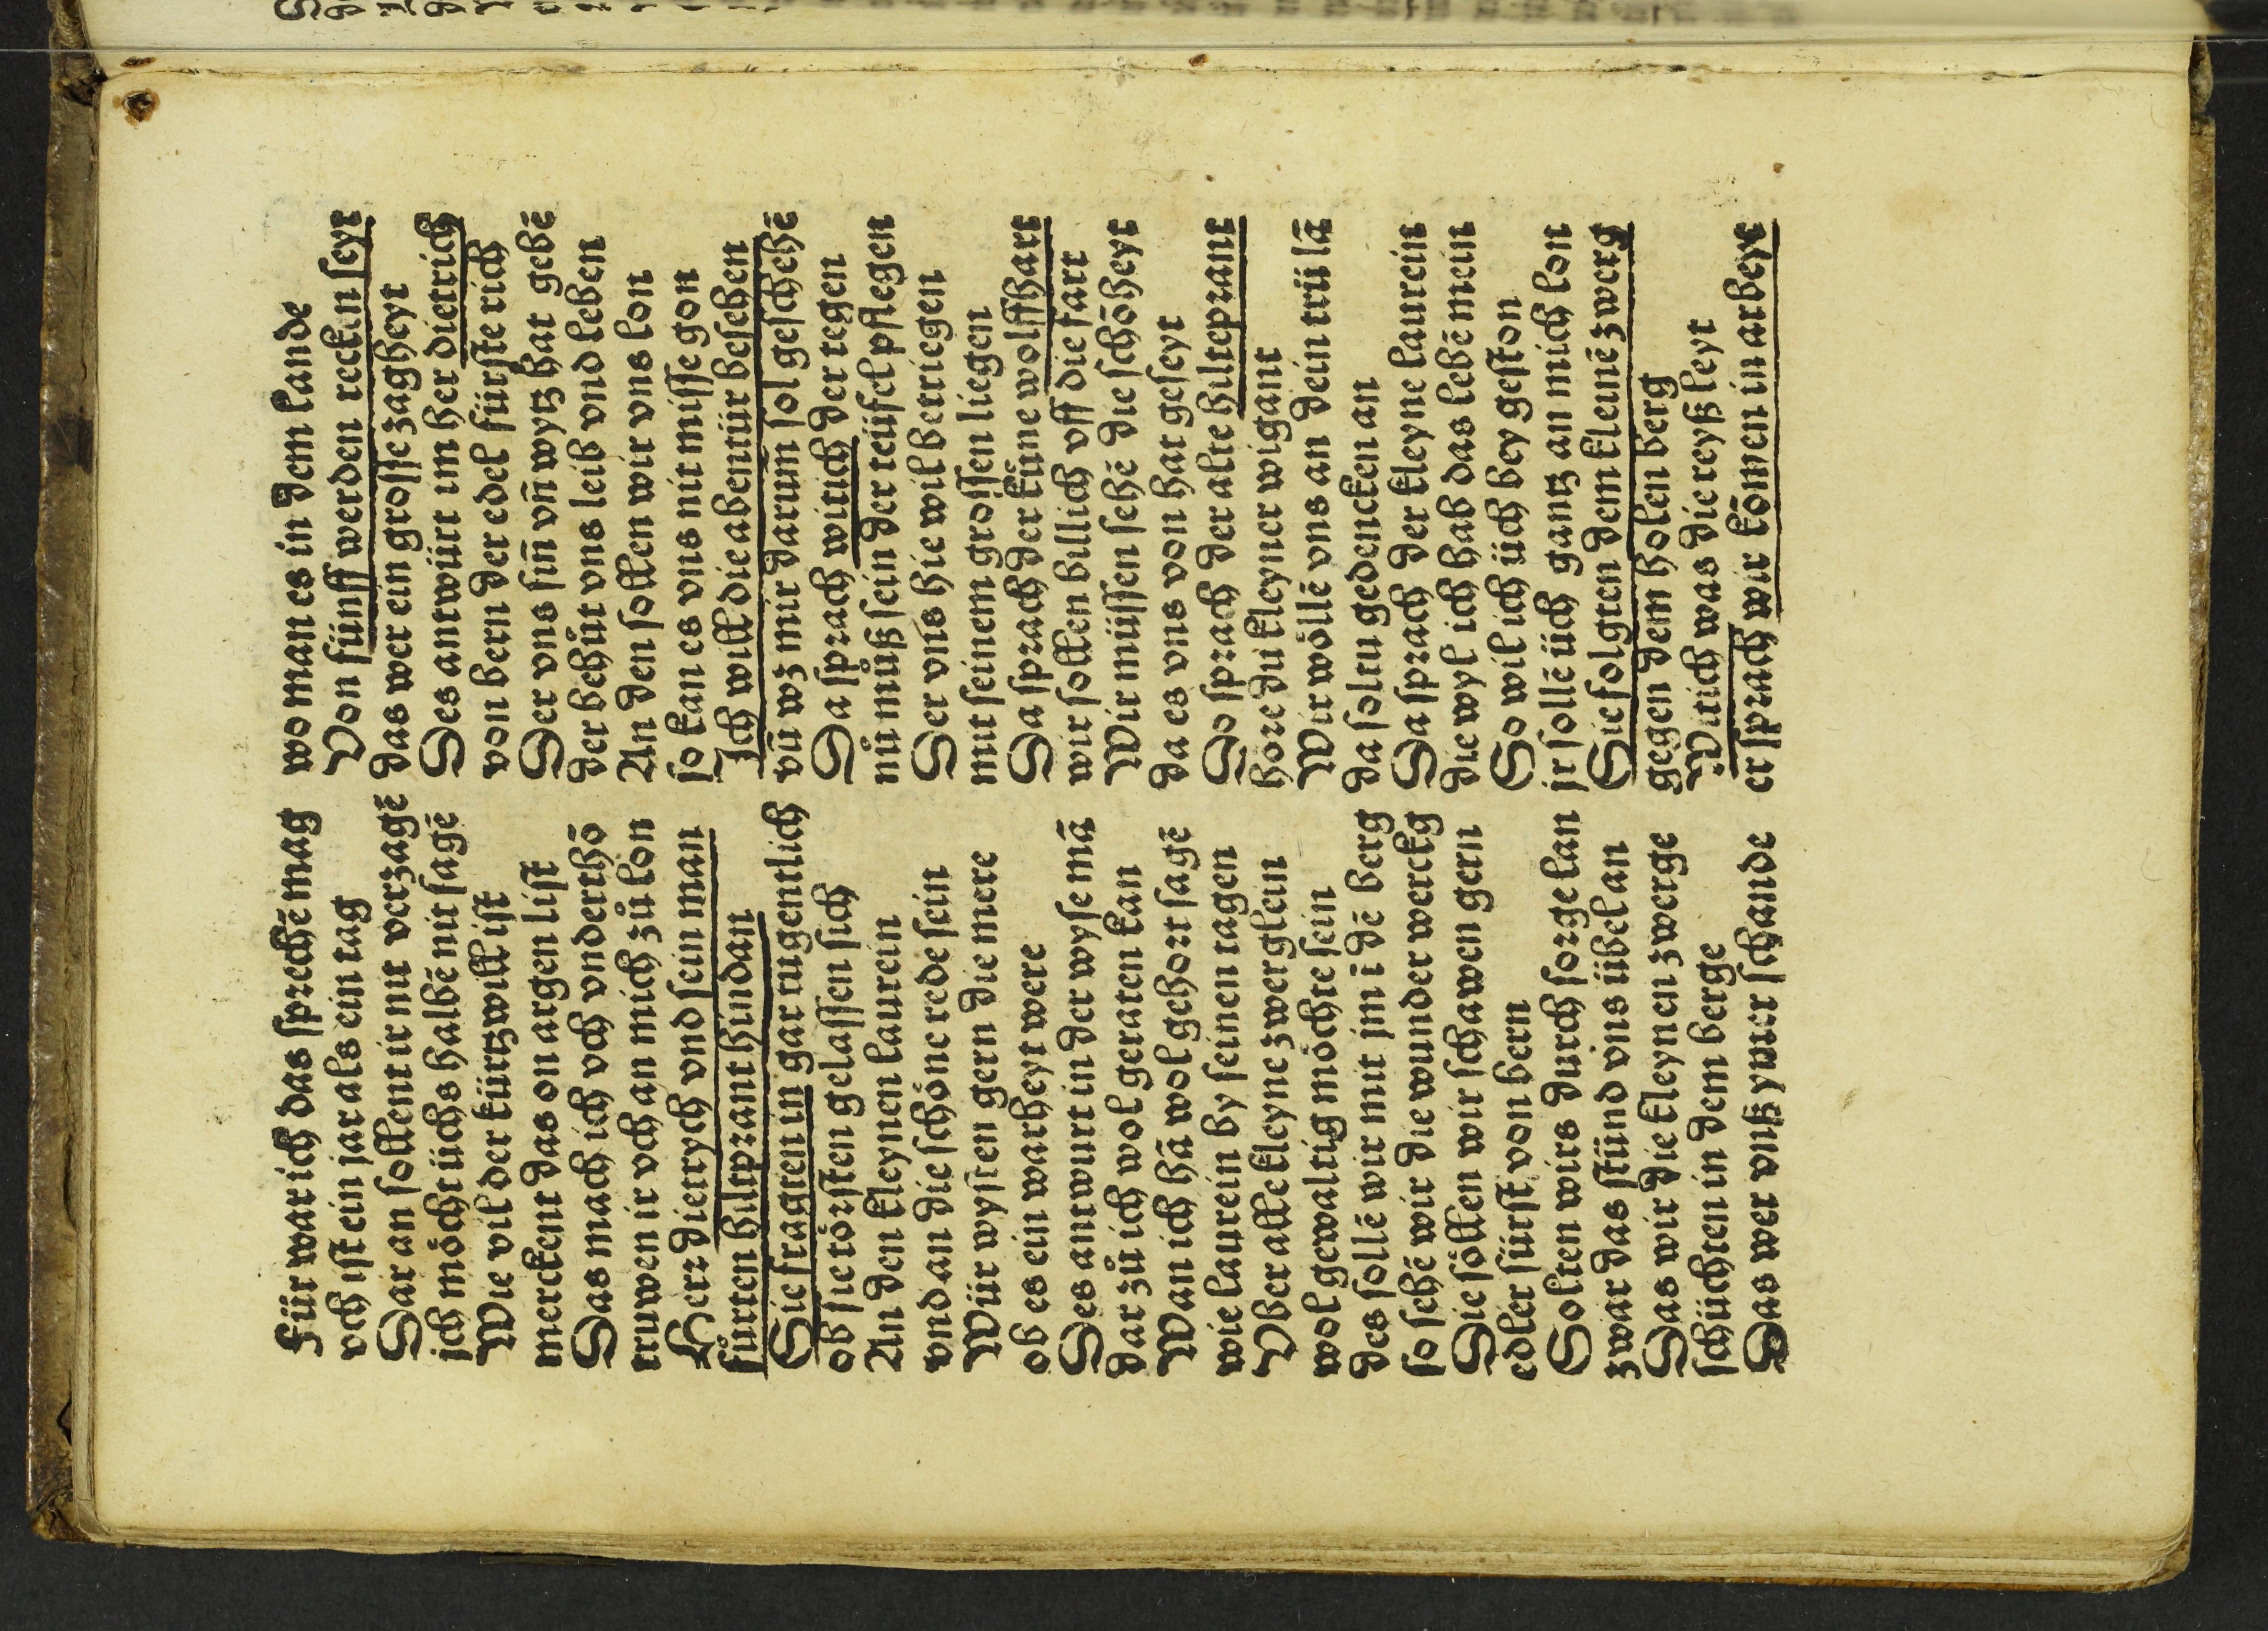 Für war ich das sprechē mag
vch ist ein jar als ein tag
Dar an sollent ir nit verzagē
ich möcht üchs halbē nit sagē
Wie vil der kürtzwill ist
merckent das on argen list
Das mach ich vch vnderthō
truwen ir vch an mich zů lon
Herz dietrych vnd sein man
fürten hiltprant hindan
Sie fragten in gar tugentlich
ob sie törsten gelassen sich
An den kleynen laurein
vnd an die schöne rede sein
Wür wysten gern die mere
ob es ein warheyt were
Des antwurt in der wyse mā
dar zů ich wol geraten kan
Wan ich hā wol gehort sagē
wie laurein by seinen tagen
Vber alle kleyne zwerglein
wol gewaltig möchte sein
des sollē wir mit jm ī dē berg
so sehē wir die wunder werckg
Die söllen wir schawen gern
edler fürst von bern
Solten wirs durch sorge lan
zwar das stünd vns übel an
Das wir die kleynen zwerge
schüchten in dem berge
Das wer vnß ymer schande
wo man es in dem lande
Von fünff werden recken seyt
das wer ein grosse zagheyt
Des antwürt im her dietrich
von bern der edel fürste rich
Der vns sin̄ vn̄ wytz hat gebē
der behůt vns leib vnd leben
An den sollen wir vns lon
so kan es vns nit misse gon
Ich will die abentür besehen
vn̄ wz mir darum sol geschehē
Da sprach witich der tegen
nů můß sein der teüfel pflegen
Der vns hie wil betriegen
mit seinem grossen liegen
Da sprach der küne wolffhart
wir sollen billich vff die fart
Wir müssen sehē die schōheyt
da es vns von hat geseyt
Do sprach der alte hilteprant
höre du kleyner wigant
Wir wöllē vns an dein trü lā
da soltu gedencken an
Da sprach der kleyne laurein
die wyl ich hab das lebē mein
So wil ich üch bey geston
jr sollē üch gantz an mich lon
Sie folgten dem kleinē zwerg
gegen dem holen berg
Witich was die reyß leyt
er sprach wir kōmen in arbeyt